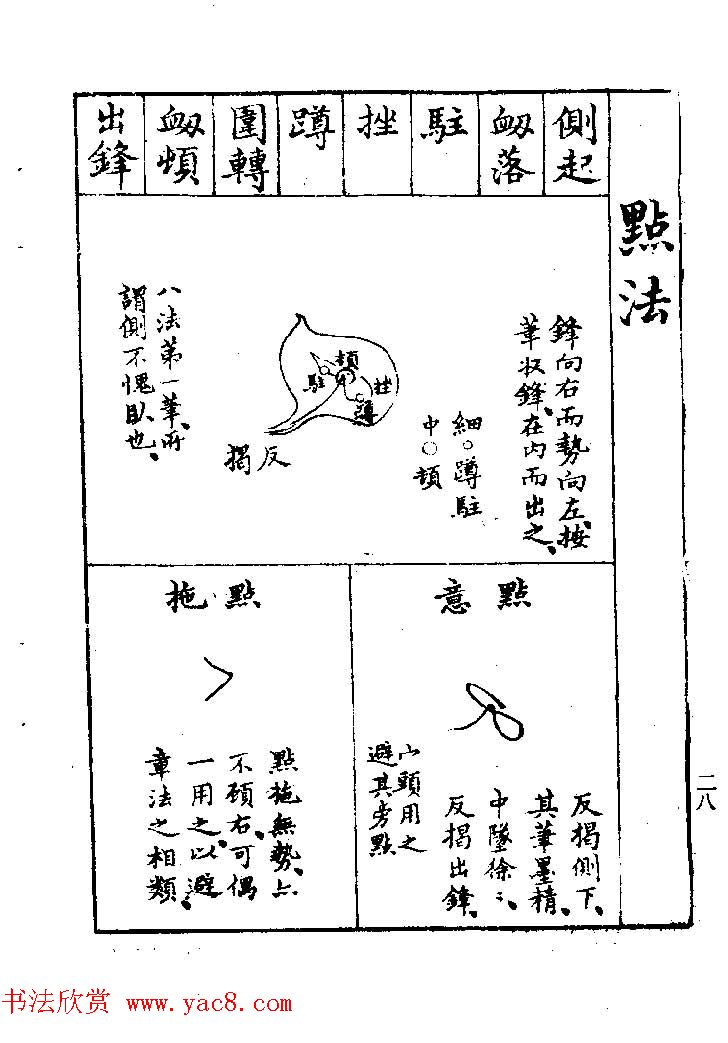 點法
側起
衂落
駐
挫
蹲
圍轉
衂頓
出鋒
鋒向右而勢向左、按
筆收鋒、在内而出之、
細○蹲駐
中○頓
頓
駐
挫
蹲
反
揭
八法第一筆、所
謂側不愧臥也、
意點
反揭側下、
其筆墨精、
中墜徐々、
反揭出鋒、
山頭用之
避其旁點
拖點
點拖無勢、上
不頋右、可偶
一用之、以避
章法之相類、
二八
书法欣赏 www.yac8.com